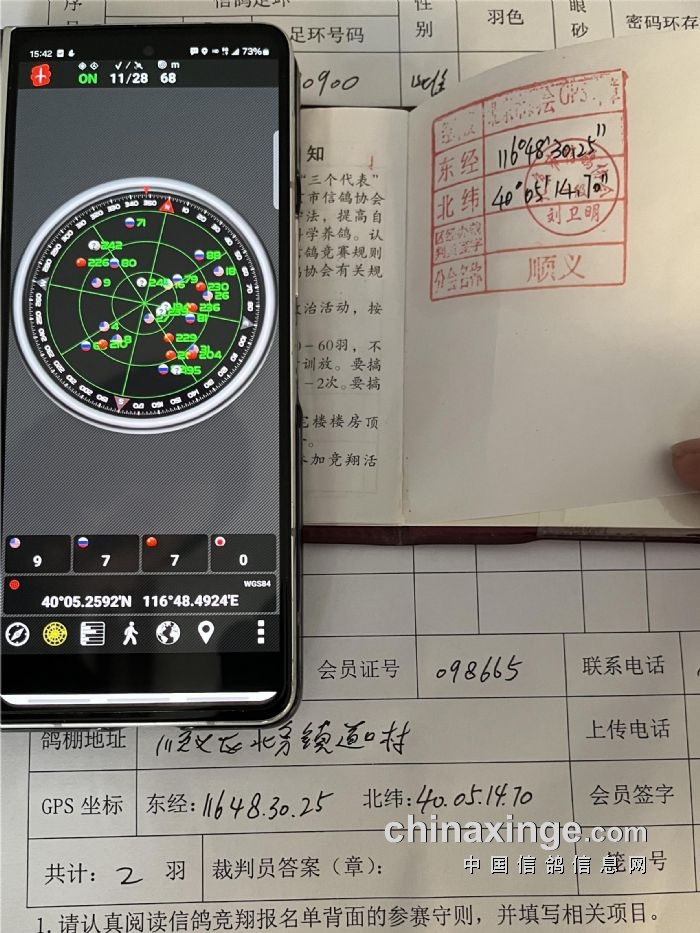 信鸽足环
性别
羽色
眼砂
密码环存
足环号码
0900
15:42
73%
ON 11/28 68
m
71
242
226
80
88
18
9
79
230
26
236
4
81
229
8
31
204
9
7
7
0
WGS84
40°05.2592'N 116°48.4924'E
知
“三个代表”
市信鸽协会
法，提高自
科学养鸽。认
鸽竞赛规则
鸽协会有关规
政治活动，按
-60羽，不
训放。要搞
-2次。要搞
楼楼房顶
参加竞翔活
东经 116°48'30.25"
北纬 40°05'14.70"
刘卫明
顺义
会员证号 098665 联系电话
鸽棚地址
上传电话
GPS 坐标 东经: 116 48.30.25 北纬: 40.05.14.70 会员签字
chinaxinge.com
中国信鸽信息网
共计: 2 羽 裁判员答案（章）:
号
1.请认真阅读信鸽竞翔报名单背面的参赛守则，并填写相关项目。